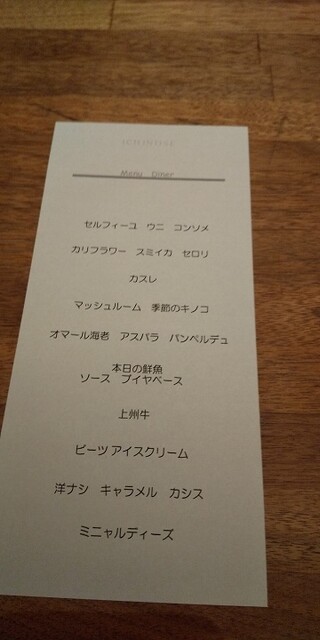 Menu Diner
セルフィーユ ウニ コンソメ
カリフラワー スミイカ セロリ
カスレ
マッシュルーム 季節のキノコ
オマール海老 アスパラ パンペルデュ
本日の鮮魚
ソース ブイヤベース
上州牛
ビーツ アイスクリーム
洋ナシ キャラメル カシス
ミニャルディーズ